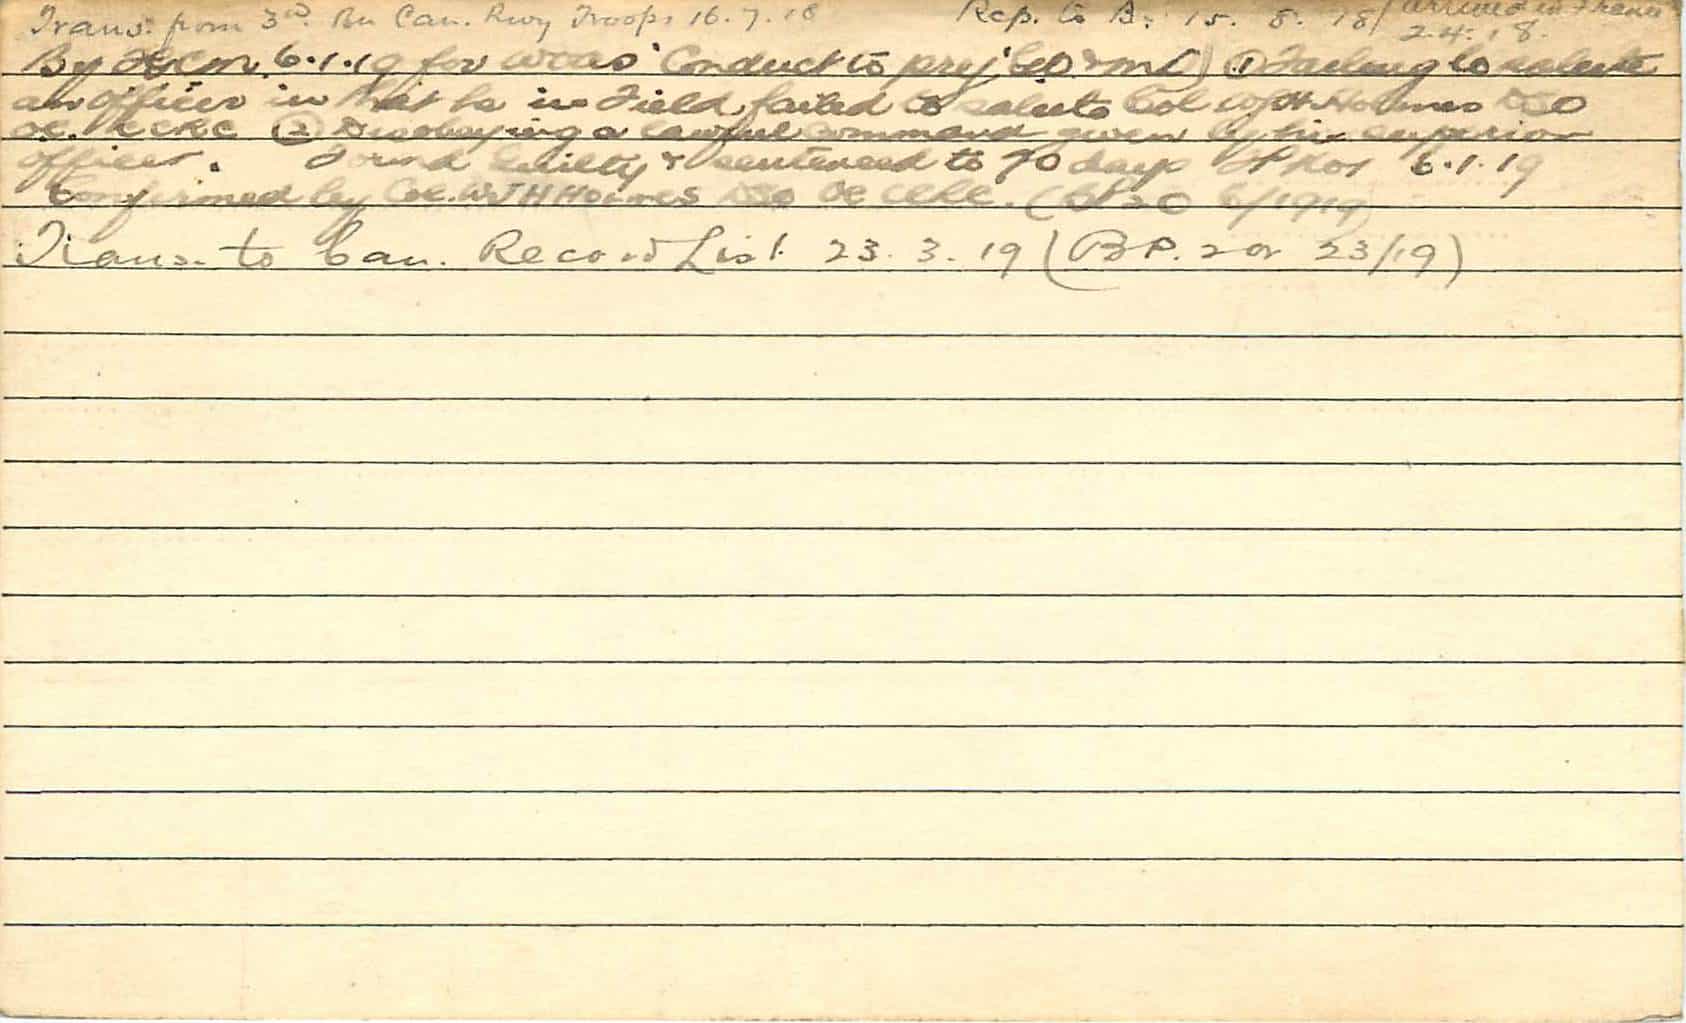 Trans. from 3rd Bn Can. Rwy Troops 16.7.18 Rep. to B. 15.8.18 / arrived in France
2.4.18.
By FGCM 6.1.19 for WOAS 'Conduct to prej GO & MD' (1) Failing to salute
an officer in that he in Field failed to salute Col WJH Holmes DSO
OC. CCRC (2) Disobeying a lawful command given by his superior
officer. Found Guilty & sentenced to 70 days FP No1 6.1.19
Confirmed by Col. WJH Holmes DSO OC CCRC. 6/1919)
Trans. to Can. Record List 23.3.19 (BP. 2 or 23/19)